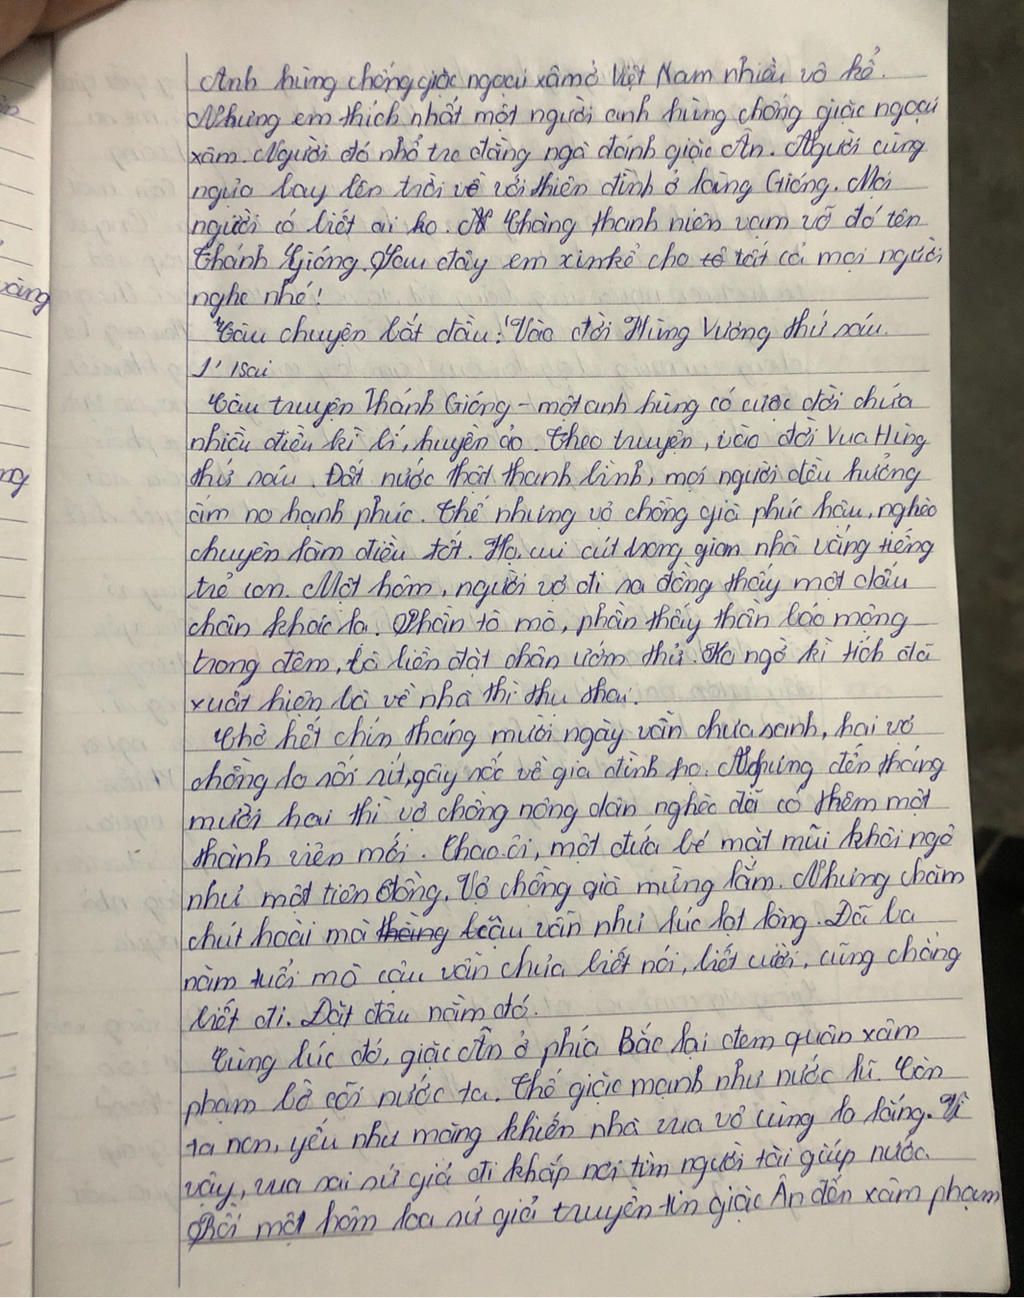 Anh hùng chống giặc ngoại xâm ở Việt Nam nhiều vô kể.
Nhưng em thích nhất một người anh hùng chống giặc ngoại
xâm. Người đó nhổ tre đằng ngà đánh giặc Ân. Người cùng
ngựa bay lên trời về với thiên đình ở làng Gióng. Mọi
người có biết ai ko. Chàng thanh niên vạm vỡ đó tên
Thánh Gióng. Sau đây em xin kể cho tất cả mọi người
nghe nhé!
Câu chuyện bắt đầu: Vào đời Hùng Vương thứ sáu.
1' sai
Câu truyện Thánh Gióng - một anh hùng có cuộc đời chứa
nhiều điều kì lí, huyền ảo. Theo truyện, vào đời Vua Hùng
thứ sáu. Đất nước thật thanh bình, mọi người đều hưởng
ấm no hạnh phúc. Thế nhưng vỏ chồng già phúc hậu, nghèo
chuyên làm điều tốt. Họ, cút trong gian nhà vắng tiếng
trẻ con. Một hôm, người vợ đi ra đồng thấy một dấu
chân khác lạ. Phần tò mò, phần thấy thần báo mộng
trong đêm, bà liền đặt chân ướm thử. Ko ngờ kì tích đã
xuất hiện bà về nhà thì thụ thai.
Chờ hết chín tháng mười ngày vẫn chưa sanh, hai vợ
chồng lo sốt sít, gây sốc về gia đình họ. Nhưng đến tháng
mười hai thì vợ chồng nông dân nghèo đã có thêm một
thành viên mới. Chao ôi, một đứa bé mặt mũi khôi ngô
như một tiên đồng. Vợ chồng già mừng lắm. Nhưng chăm
chút hoài mà thằng cậu vẫn như lúc lọt lòng. Đã ba
năm tuổi mà cậu vẫn chưa biết nói, biết cười, cũng chẳng
biết đi. Đặt đâu nằm đó.
Cùng lúc đó, giặc Ân ở phía Bắc lại đem quân xâm
phạm bờ cõi nước ta. Thế giặc mạnh như nước lũ. Còn
ta non, yếu như măng khiến nhà vua vô cùng lo lắng. Vì
vậy, vua sai sứ giả đi khắp nơi tìm người tài giúp nước.
Rồi một hôm loa sứ giả truyền tin giặc Ân đến xâm phạm